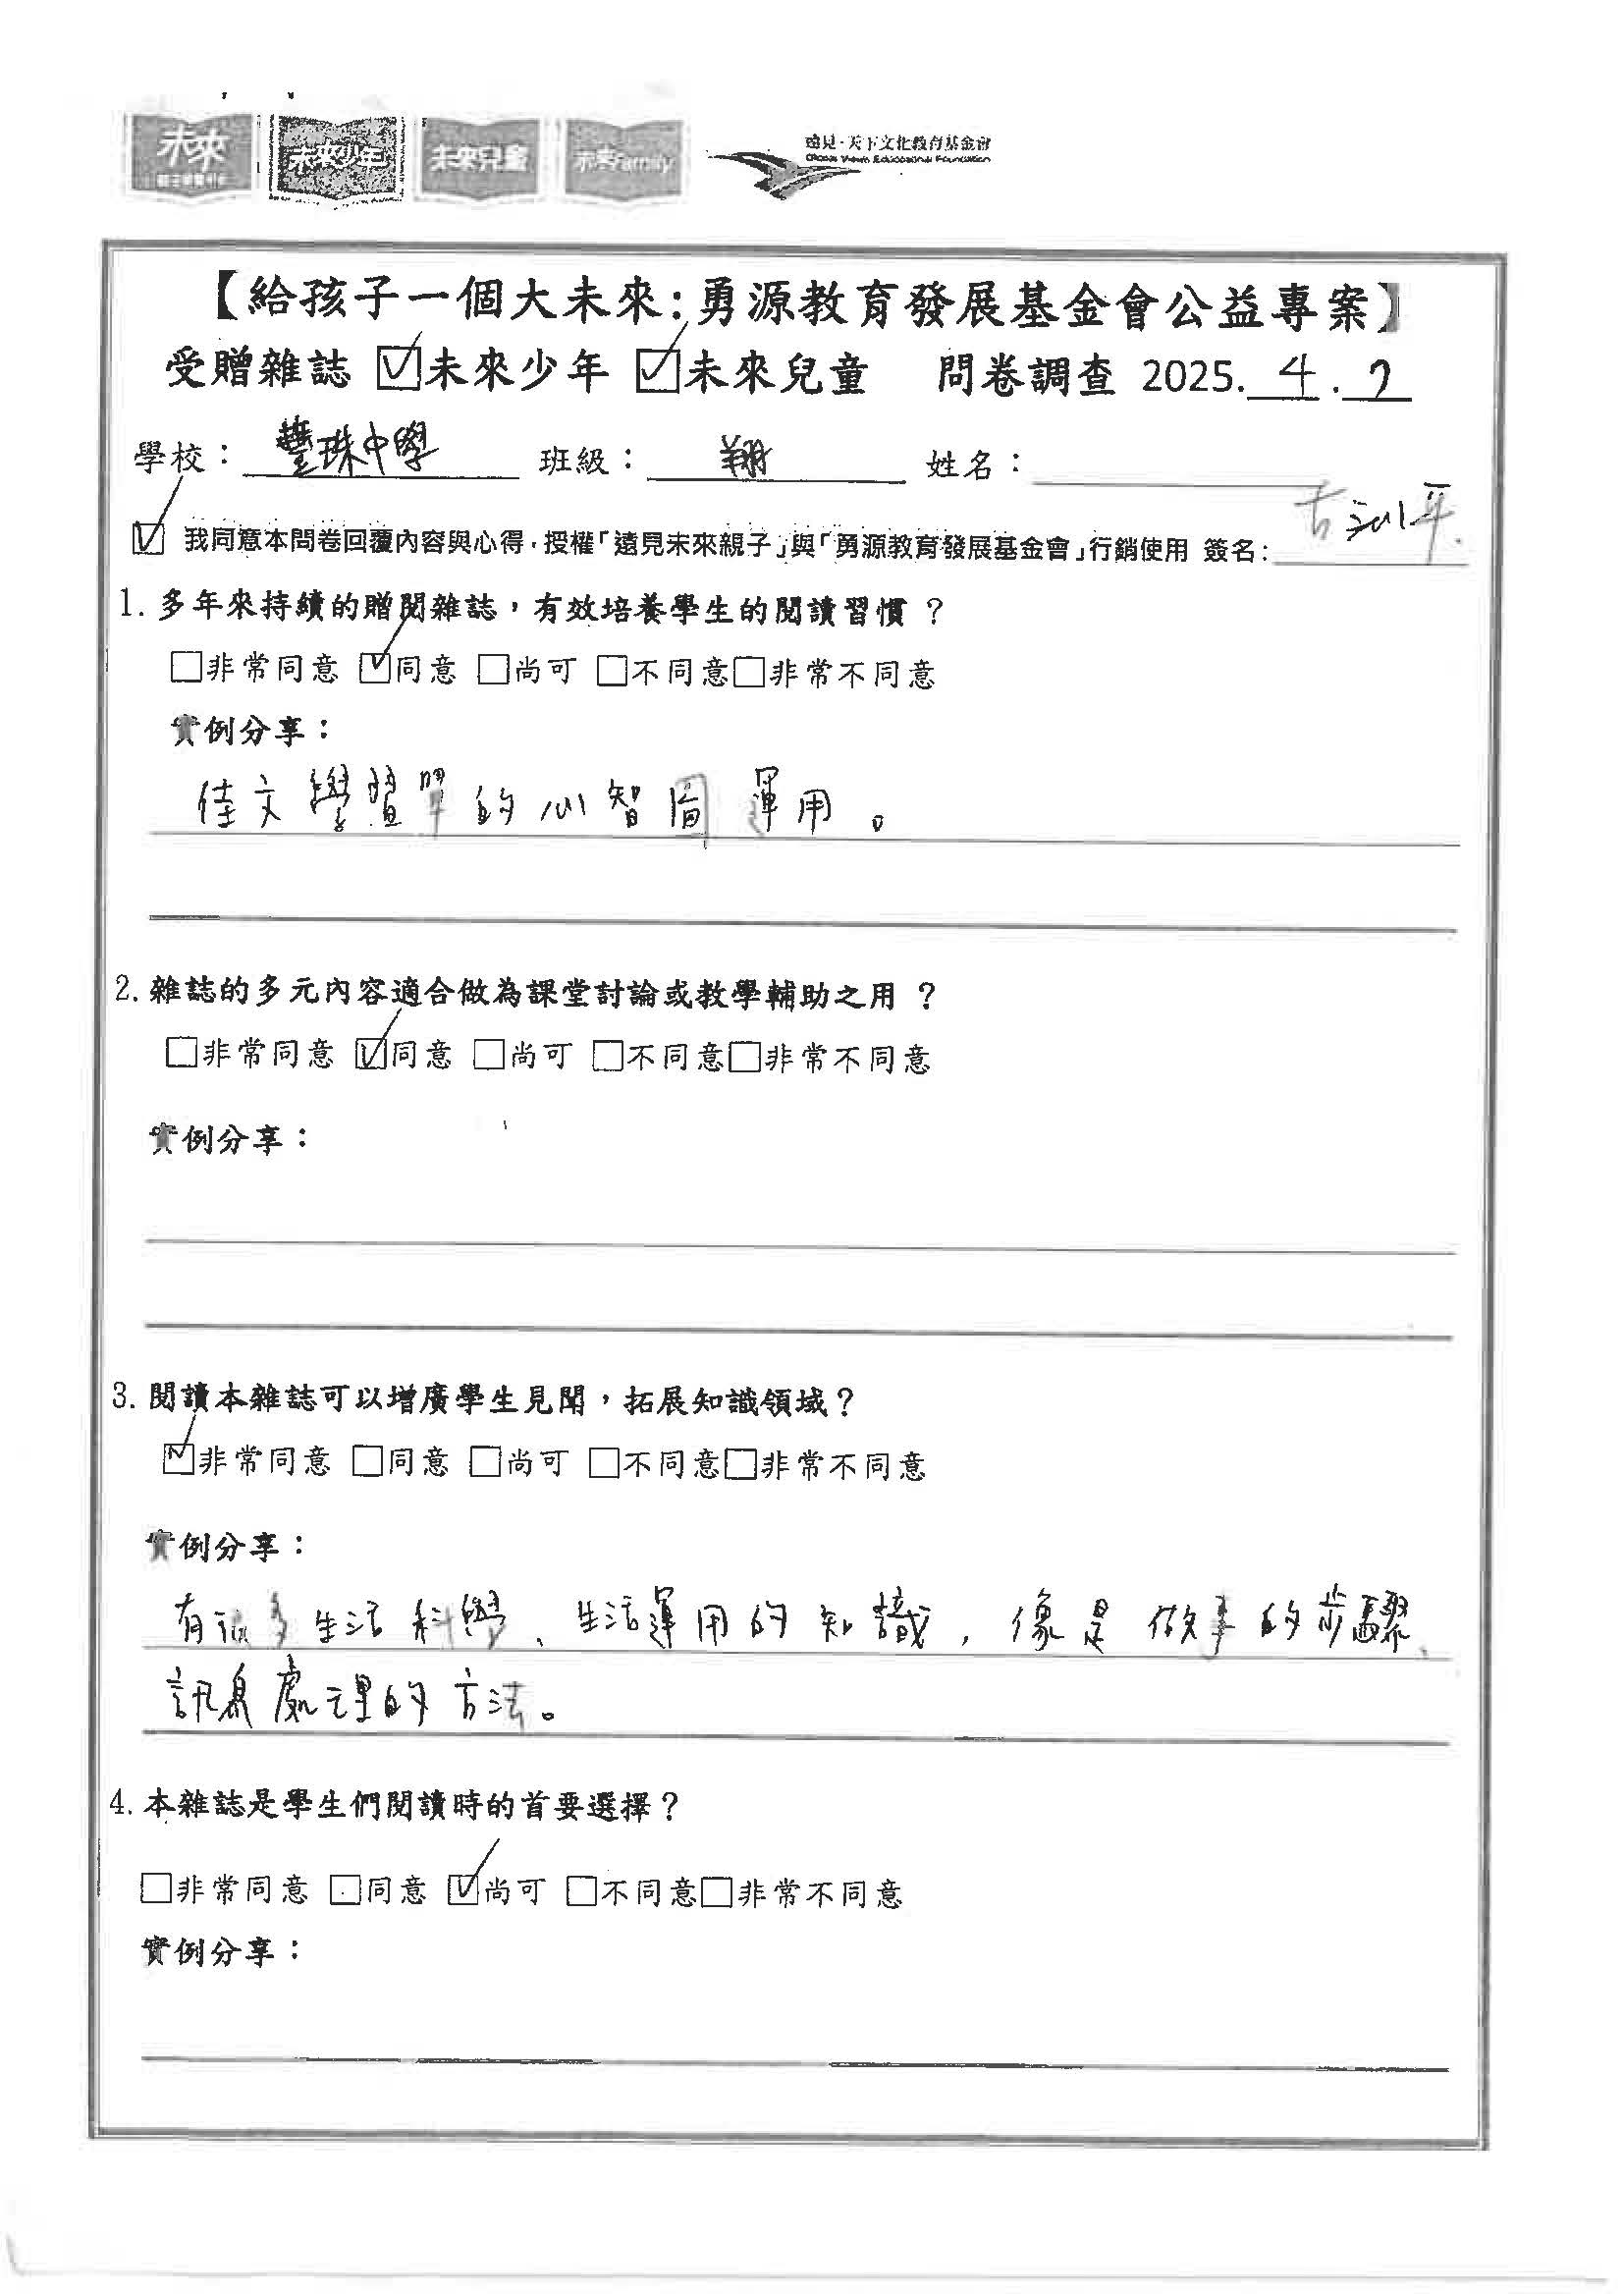 未來
未來少年
未來兒童
未來Family
遠見·天下文化教育基金會
Global Views Educational Foundation
【給孩子一個大未來:勇源教育發展基金會公益專案】
受贈雜誌 ☑未來少年 ☑未來兒童 問卷調查 2025. 4 . 7
學校：豐珠中學 班級：翔 姓名：
☑ 我同意本問卷回覆內容與心得，授權「遠見未來親子」與「勇源教育發展基金會」行銷使用 簽名：
1. 多年來持續的贈閱雜誌，有效培養學生的閱讀習慣？
□非常同意 ☑同意 □尚可 □不同意□非常不同意
實例分享：
佳文學習單的心智圖運用。
2. 雜誌的多元內容適合做為課堂討論或教學輔助之用？
□非常同意 ☑同意 □尚可 □不同意□非常不同意
實例分享：
3. 閱讀本雜誌可以增廣學生見聞，拓展知識領域？
☑非常同意 □同意 □尚可 □不同意□非常不同意
實例分享：
有很多生活科學、生活運用的知識，像是做事的步驟、
訊息處理的方法。
4. 本雜誌是學生們閱讀時的首要選擇？
□非常同意 □同意 ☑尚可 □不同意□非常不同意
實例分享：